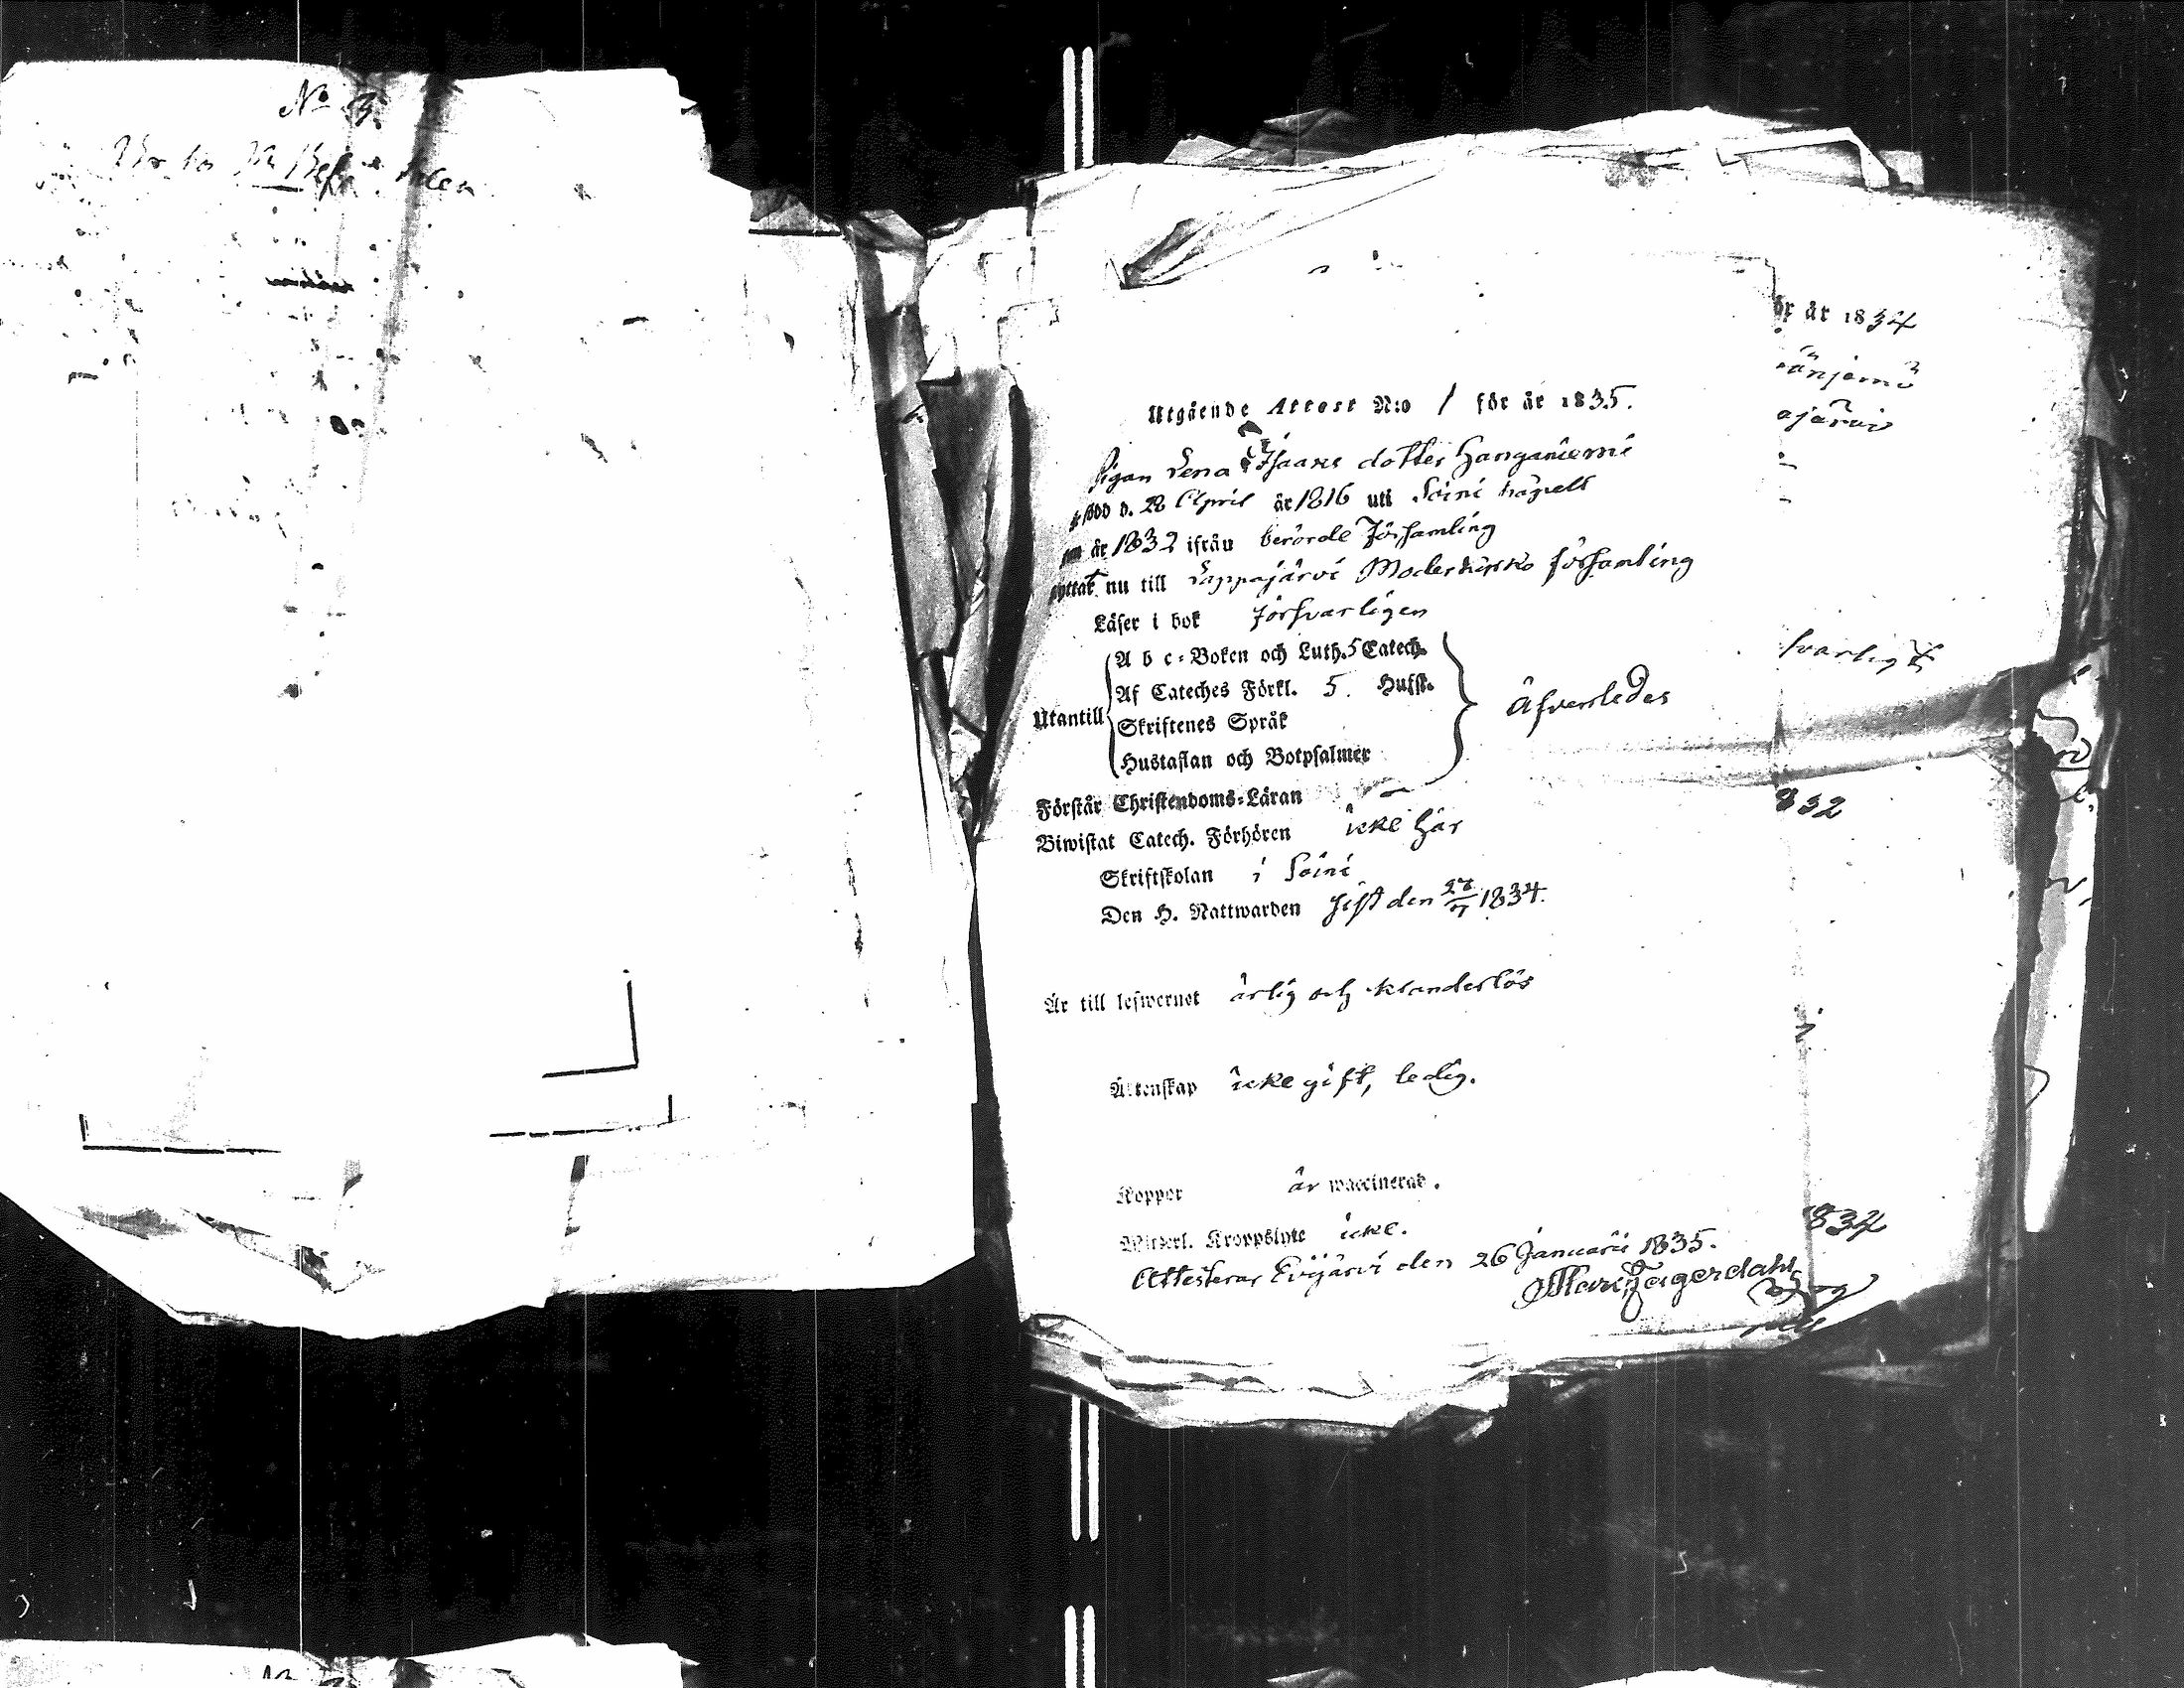 No 3.
Utgående Attest N:o 1 för år 1835.
Pigan Lena Isaacs dotter Hanganiemi
är född d. 28 April år 1816 uti Soini kapell
om år 1832 ifrån berörde Församling
nu till Lappajärvi Moderkyrko församling
Läser i bok försvarligen
Utantill
A b c-Boken och Luth. 5 Catech.
Af Cateches Förkl. 5. Hufst.
Skriftenes Språk
Hustaflan och Botpsalmer
äfvenledes
Förstår Christendoms-Läran
Biwistat Catech. Förhören icke här
Skriftskolan i Soini
Den H. Nattwarden sist den 27/7 1834.
Är till lefwernet ärlig och klanderlös
Äktenskap icke gift, ledig.
Koppor är waccinerad.
Kroppslyte icke.
Attesterar Evijärvi den 26 Januarii 1835.
ör år 1834
änjemi
ajärvi
svarligt
832
834